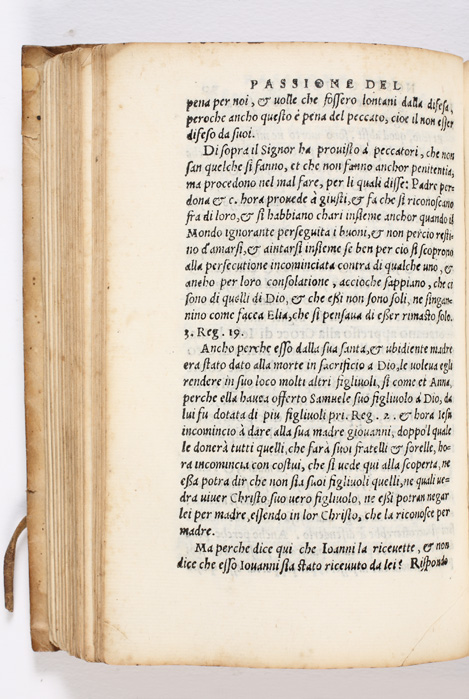 PASSIONE DEL
pena per noi, & uolle che fossero lontani dalla difesa,
peroche ancho questo è pena del peccato, cioe il non esser
difeso da suoi.
Di sopra il Signor ha prouisto à peccatori, che non
san quelche si fanno, et che non fanno anchor penitentia,
ma procedono nel mal fare, per li quali disse: Padre per-
dona & c. hora prouede à giusti, & fa che si riconoscano
fra di loro, & si habbiano chari insieme anchor quando il
Mondo ignorante perseguita i buoni, & non percio resti-
no d'amarsi, & aiutarsi insieme se ben per cio si scoprono
alla persecutione incominciata contra di qualche uno, &
ancho per loro consolatione, accioche sappiano, che ci
sono di quelli di Dio, & che essi non sono soli, ne singan-
nino come facea Elia, che si pensaua di esser rimasto solo.
3. Reg. 19.
Ancho perche esso dalla sua santa, & ubidiente madre
era stato dato alla morte in sacrificio a Dio, le uoleua egli
rendere in suo loco molti altri figliuoli, si come et Anna,
perche ella hauea offerto Samuele suo figliuolo à Dio, da
lui fu dotata di piu figliuoli pri. Reg. 2. & hora Iesu
incomincio à dare alla sua madre giouanni, doppo'l quale
le donerà tutti quelli, che farà suoi fratelli & sorelle, ho-
ra incomincia con costui, che si uede qui alla scoperta, ne
essa potra dir che non sia suoi figliuoli quelli, ne quali ue-
dra uiuer Christo suo uero figliuolo, ne essi potran negar
lei per madre, essendo in lor Christo, che la riconosce per
madre.
Ma perche dice qui che Ioanni la riceuette, & non
dice che esso Iouanni sia stato riceuuto da lei? Rispondo